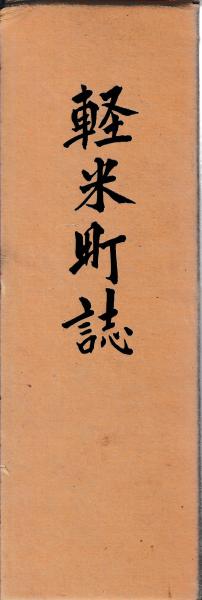 軽米町誌